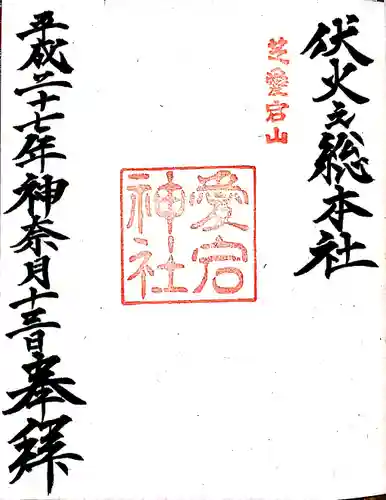 伏火之総本社
芝愛宕山
愛宕
神社
平成二十七年神奈月十三日奉拝